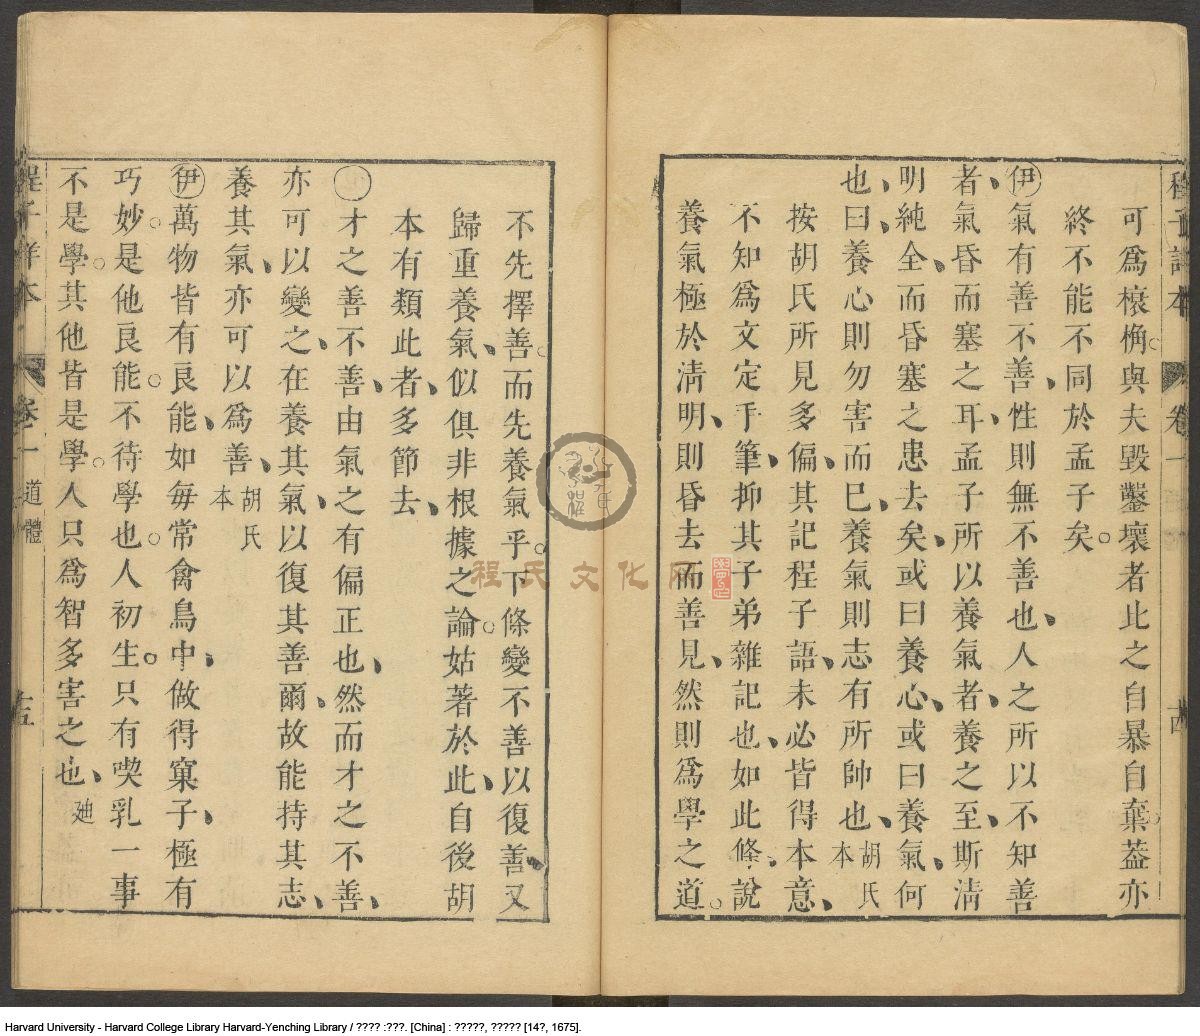 程子詳本 卷一 十四
可爲桮棬與夫毀鑿壞者此之自暴自棄葢亦
終不能不同於孟子矣
伊氣有善不善性則無不善也人之所以不知善
者氣昏而塞之耳孟子所以養氣者養之至斯淸
明純全而昏塞之患去矣或曰養心或曰養氣何
也曰養心則勿害而已養氣則志有所帥也胡氏本
按胡氏所見多偏其記程子語未必皆得本意
不知爲文定手筆抑其子弟雜記也如此條說
養氣極於淸明則昏去而善見然則爲學之道
不先擇善而先養氣乎下條變不善以復善又
歸重養氣似俱非根據之論姑著於此自後胡
本有類此者多節去
才之善不善由氣之有偏正也然而才之不善
亦可以變之在養其氣以復其善爾故能持其志
養其氣亦可以爲善胡氏本
伊萬物皆有良能如每常禽鳥中做得窠子極有
巧妙是他良能不待學也人初生只有喫乳一事
不是學其他皆是學人只爲智多害之也廸
程子詳本 卷一 道體 十五
程氏文化网
Harvard University - Harvard College Library Harvard-Yenching Library / ???? :???. [China] : ?????, ????? [14?, 1675].